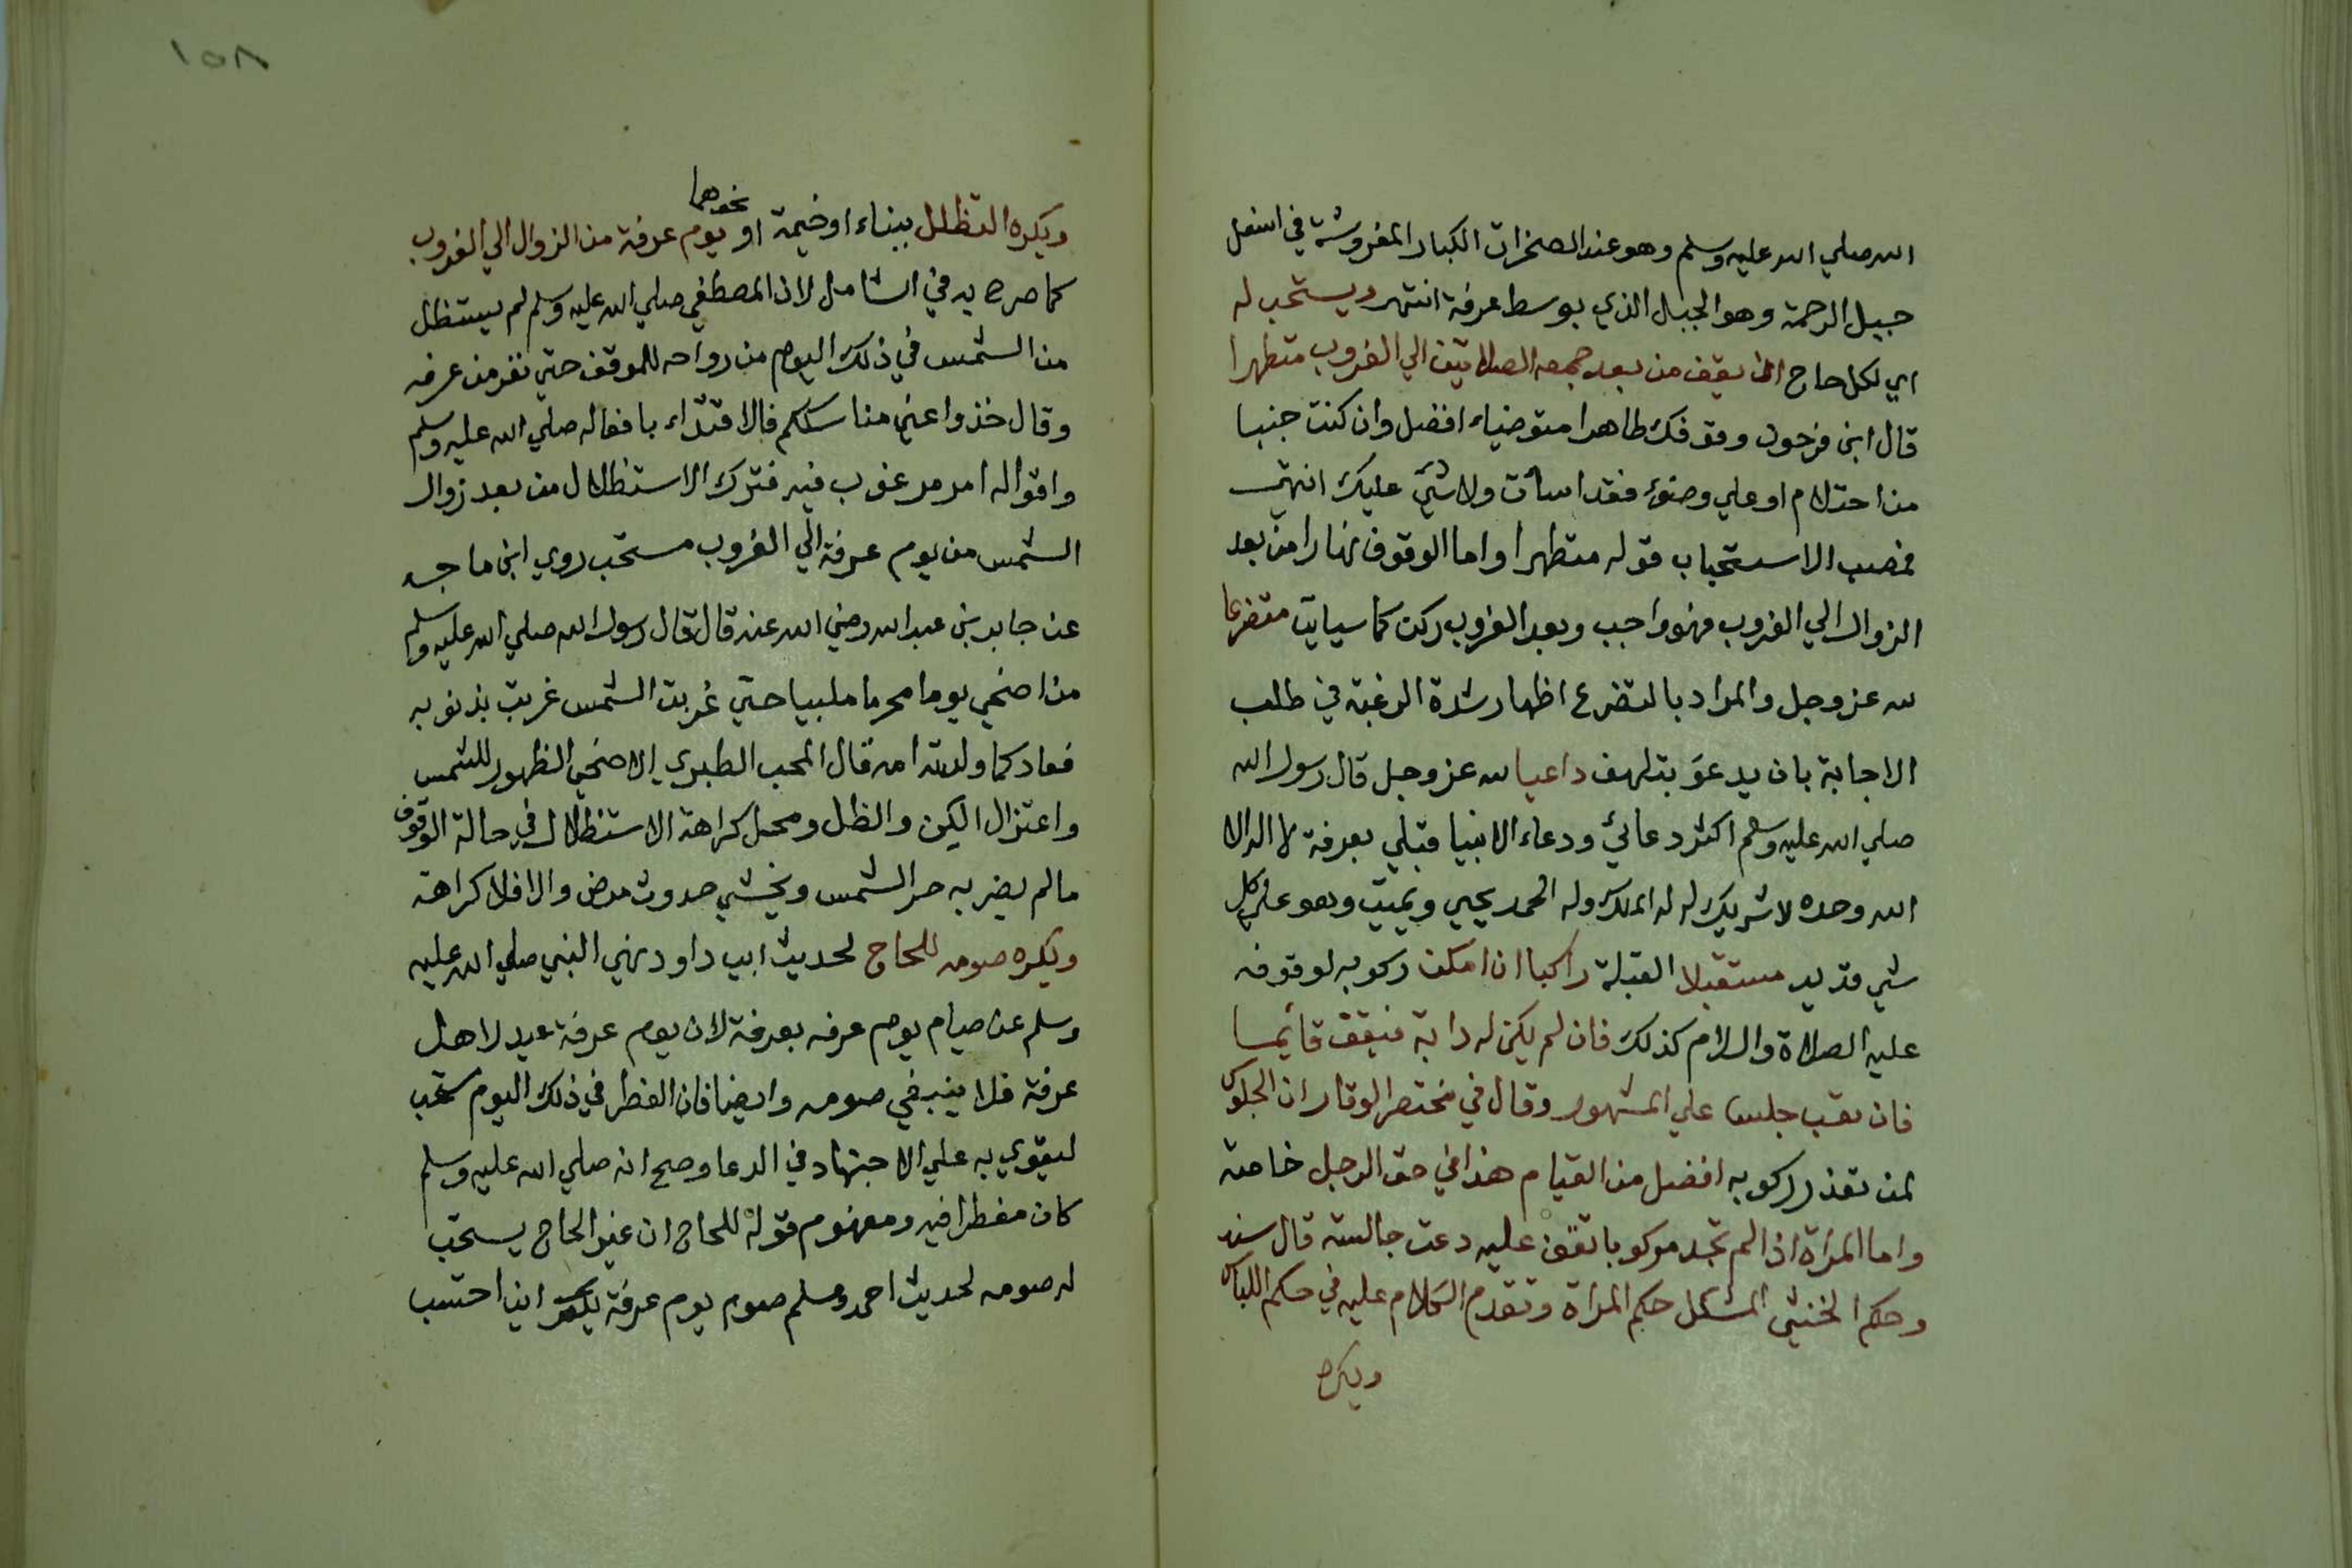 الله صلي الله عليه وسلم وهو عند الصخرات الكبار المفروشة في اسفل
جبيل الرحمة وهو الجبل الذي بوسط عرفة انتهر ويستحب له
اي لكل حاج ان يقف من بعد جمعه الصلاتين الي الغروب متطهرا
قال ابن فرحون وقوفك طاهرا متوضياء افضل وان كنت جنبا
من احتلام او علي وضوء فقد اسأت ولا شيء عليك انتهي
فمصب الاستحباب قوله متطهرا واما الوقوف نهارا من بعد
الزوال الي الغروب فهو واجب وبعد الغروب ركن كما سياتي متضرعا
لله عز وجل والمراد بالتضرع اظهار شدة الرغبة في طلب
الاجابة بان يدعو بتلهف داعيا لله عز وجل قال رسول الله
صلي الله عليه وسلم اكثر دعائي ودعاء الانبيا قبلي بعرفة لا اله الا
الله وحده لا شريك له له الملك وله الحمد يحيي ويميت وهو علي كل
شي قدير مستقبلا القبلة راكبا ان امكن ركوبه لوقوفه
عليه الصلاة والسلام كذلك فان لم يكن له دابة فيقف قايما
فان تعب جلس علي المشهور وقال في مختصر الوقار ان الجلوس
لمن تعذر ركوبه افضل من القيام هذا في حق الرجل خاصة
واما المراة اذا لم تجد مركوبا تقف عليه دعت جالسة قال سند
وحكم الخنثي المشكل حكم المراة وتقدم الكلام عليه في حكم اللباس
ويكره
١٥٨
نحوهما
ويكره التظلل ببناء او خيمة او يوم عرفة من الزوال الي الغروب
كما صرح به في الشامل لان المصطفي صلي الله عليه وسلم لم يستظل
من الشمس في ذلك اليوم من رواحه للموقف حتي نفر من عرفه
وقال خذوا عني مناسككم فالاقتداء بافعاله صلي الله عليه وسلم
واقواله امر مرغوب فيه فترك الاستظلال من بعد زوال
الشمس من يوم عرفة الي الغروب مستحب روي ابن ماجه
عن جابر بن عبد الله رضي الله عنه قال قال رسول الله صلي الله عليه وسلم
من اضحي يوما محرما ملبيا حتي غربت الشمس غربت بذنوبه
فعاد كما ولدته امه قال المحب الطبري الاضحي الظهور للشمس
واعتزال الكن والظل ومحل كراهة الاستظلال في حالة الوقوف
ما لم يضر به حر الشمس ويخشي حدوث مرض والا فلا كراهة
ويكره صومه للحاج لحديث ابي داود نهي النبي صلي الله عليه
وسلم عن صيام يوم عرفه بعرفة لان يوم عرفة عيد لاهل
عرفة فلا ينبغي صومه وايضا فان الفطر في ذلك اليوم مستحب
ليقوي به علي الاجتهاد في الدعا وصح انه صلي الله عليه وسلم
كان مفطرا فيه ومفهوم قوله للحاج ان غير الحاج يستحب
له صومه لحديث احمد ومسلم صوم يوم عرفة اني احتسب